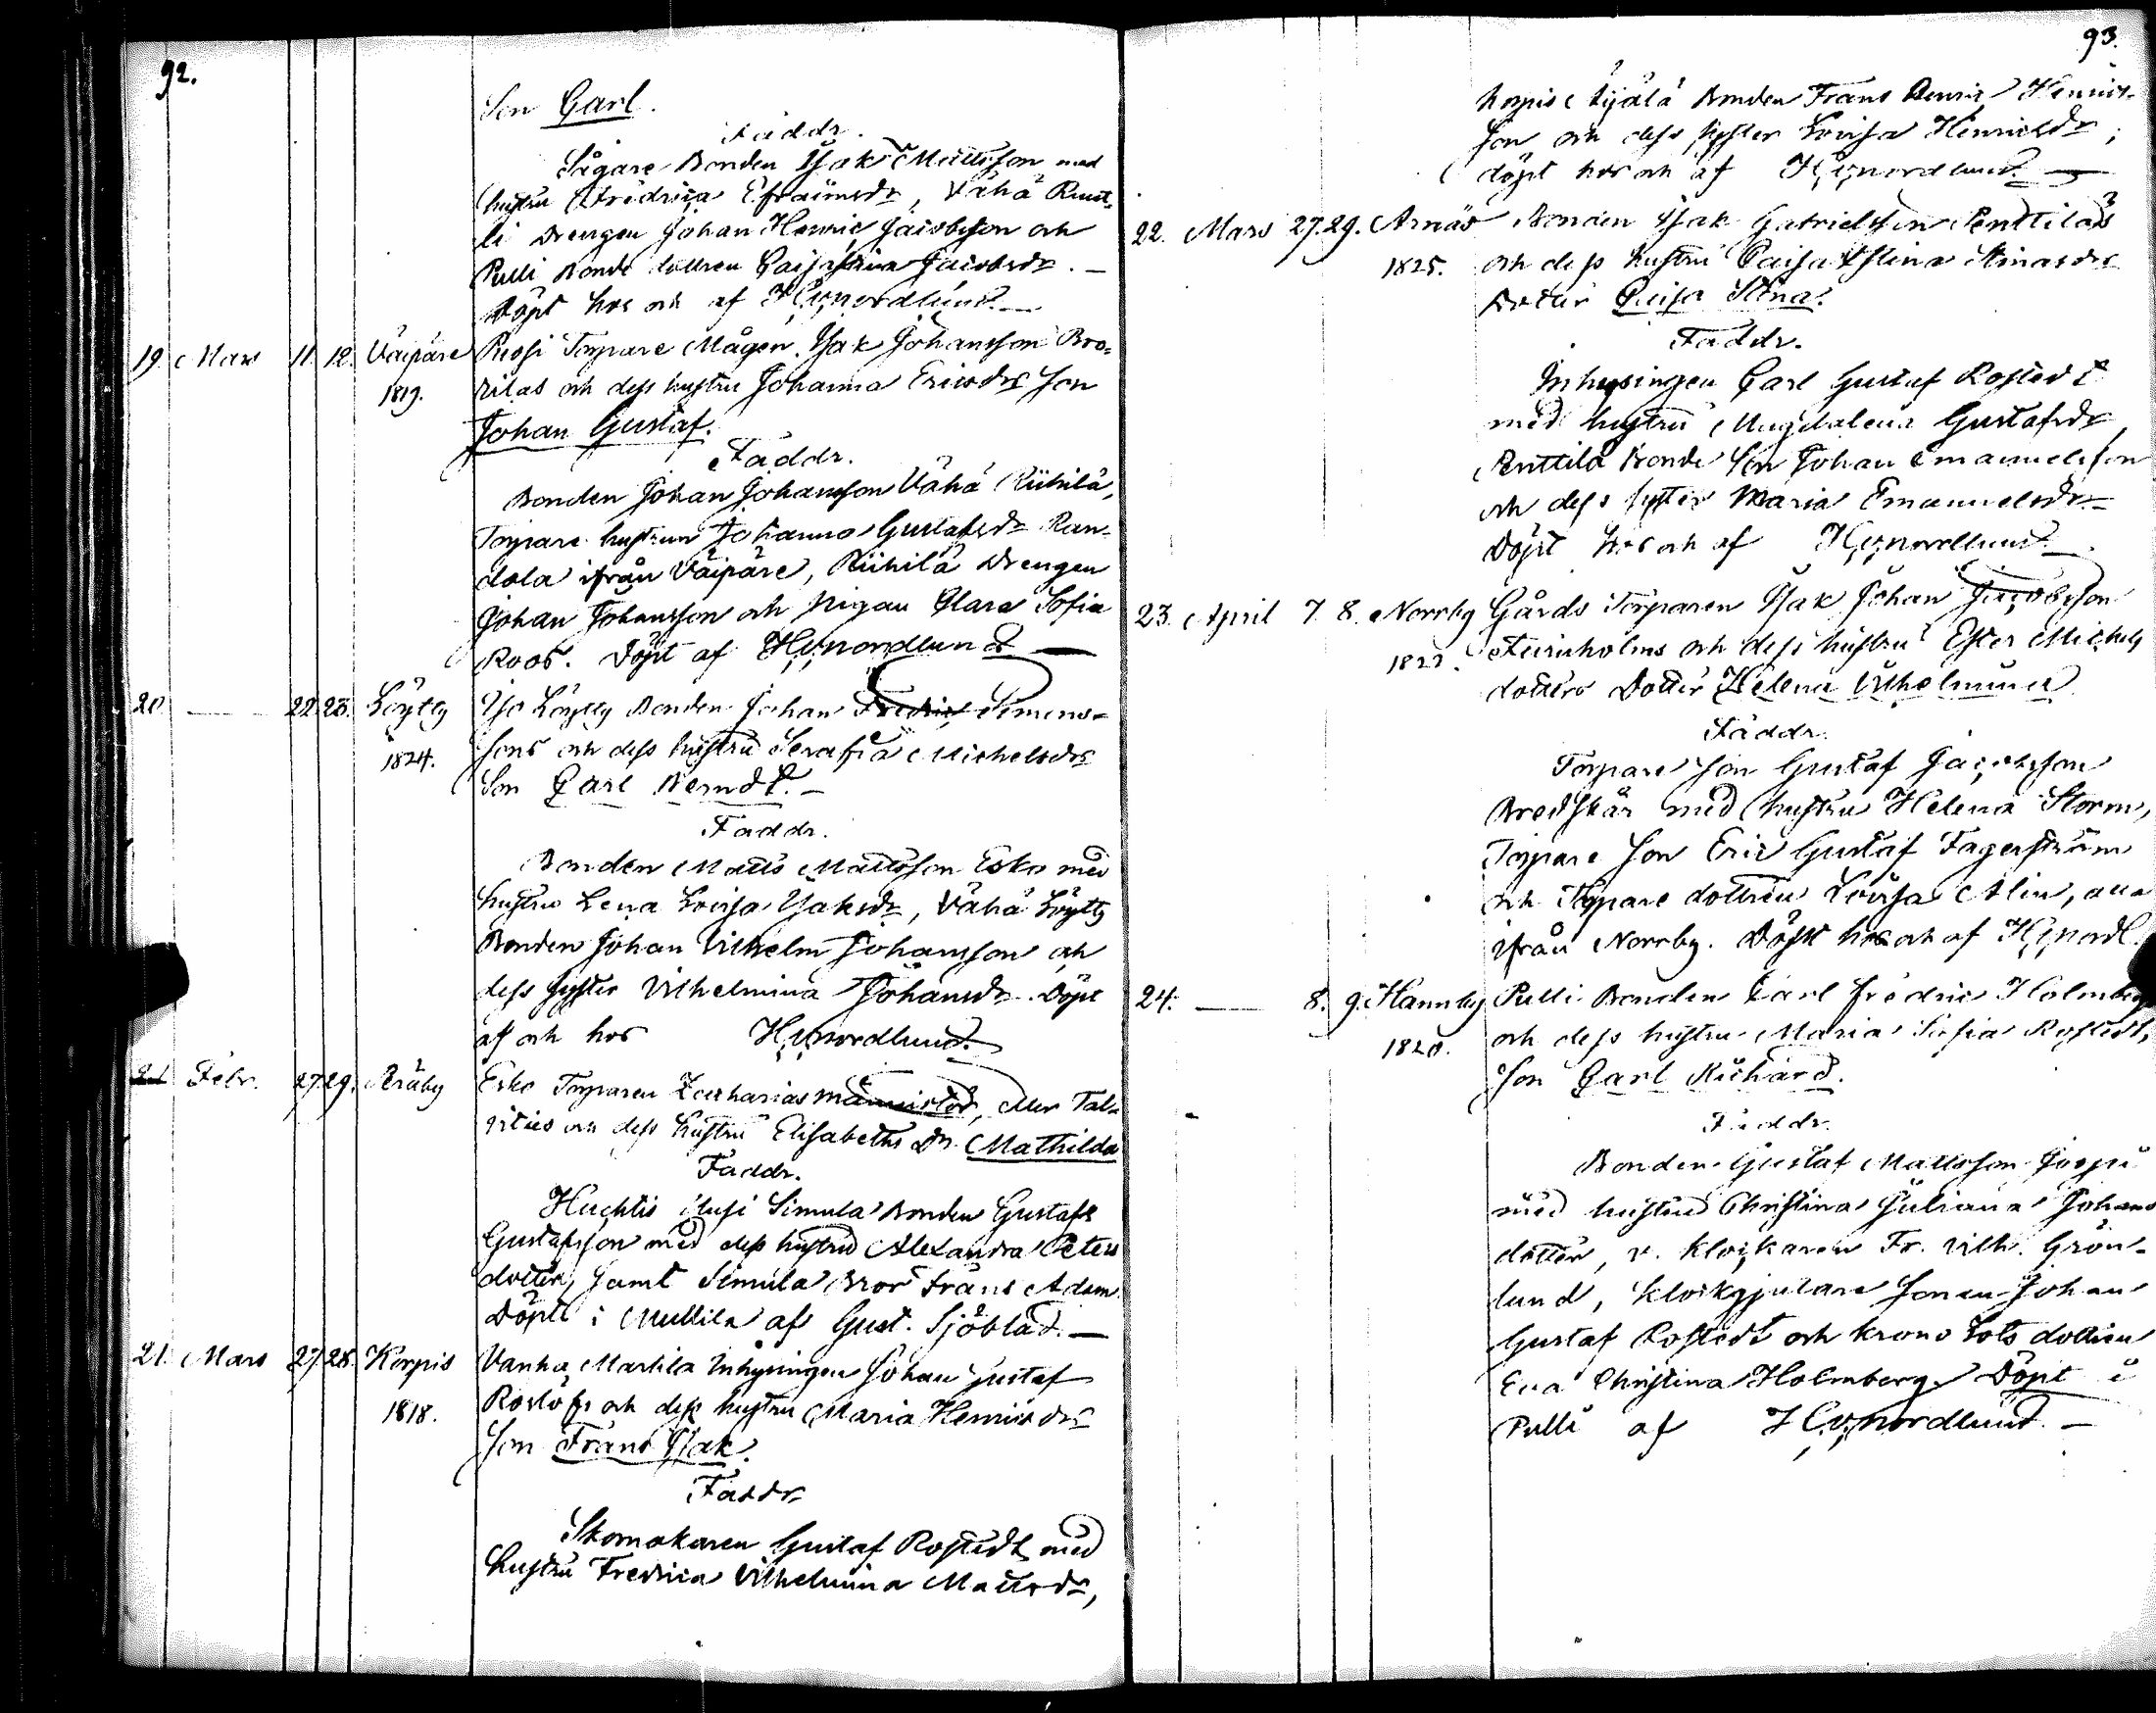 92.
Son Carl.
Faddr.
Sågare Bonden Isak Mattsson med
hustru Fredrica Efraimsdr, Vähä Runt-
li Drengen Johan Henric Jacobsson och
Pulli Bonde dottren Caisa Stina Jacobsdr. —
Döpt hos och af H. G. Nordlund. —
19. Mars 11. 12. Väipäre Prossi Torpare Mågen Isak Johansson Bro-
1819. rilas och dess hustru Johanna Ericsdrs Son
Johan Gustaf.
Faddr.
Bonden Johan Johansson Vähä Riihilä,
Torpare hustrun Johanna Gustafsdr Ran-
dala ifrån Väipäre, Riihilä Drengen
Johan Johansson och pigan Clara Sofia
Roos. Döpt af H. G. Nordlund —
20. — 22. 23. Löytty Iso Löytty Bonden Johan Fredric Simons-
1824. sons och dess hustru Serafia Michelsdrs
Son Carl Berndt. —
Faddr.
Bonden Matts Mattsson Esko med
hustru Lena Lovisa Isaksdr, Vähä Löytty
Bonden Johan Vilhelm Johansson och
dess syster Vilhelmina Johansdr. Döpt
af och hos H. G. Nordlund.
21 Febr. 27 29. Peräby Esko Torparen Zacharias Männistös, eller Tal-
vitius och dess hustru Elisabeths Dr. Mathilda
Faddr.
Huchtis Simula Bonden Gustaf
Gustafsson med dess hustru Alexandra Peters
dotter, samt Simula Bror Frans Adam.
Döpt i Mullila af Gust. Sjöblad. —
21. Mars 27. 28. Korpis Vanha Martila Inhysingen Johan Gustaf
1818. Roslöfs och dess hustru Maria Henricsdrs
Son Frans Isak.
Faddr
Skomakaren Gustaf Rostedt med
hustru Fredrica Vilhelmina Mattsdr,
93.
Korpis Äijälä Bonden Frans Henric Henrics-
son och dess syster Lovisa Henricsdr;
döpt hos och af H. G. Nordlund —
22. Mars 27. 29. Arnäs Bonden Isak Gabrielsson Penttiläs
1825. och dess hustru Caisa Stina
Dotter Caisa Stina.
Faddr.
Inhysingen Carl Gustaf Rostedt
med hustru Magdalena Gustafsdr,
Penttilä Bonde Son Johan Emanuelsson
och dess syster Maria Emanuelsdr. —
Döpt hos och af H. G. Nordlund.
23. April 7. 8. Norrby Gårds Torparen Isak Johan Jacobsson
Furuholms och dess hustru Ester Michels
dotters Dotter Helena Vilhelmina
Faddr.
Torpare Son Gustaf Jacobsson
Bredskär med hustru Helena Storm,
Torpare Son Eric Gustaf Fagerström
och Torpare dottren Lovisa Alin, alla
ifrån Norrby. Döpt hos och af H. G. Nordl.
24. — 8. 9. Hannby Pulli Bonden Carl Fredric Holmberg
1820. och dess hustru Maria Sofia Rostedts,
Son Carl Richard.
Faddr.
Bonden Gustaf Mattsson
med hustru Christina Juliana Johans
dotter, v. klockaren Fr. Vilh. Grön-
lund, klockgjutare Sonen Johan
Gustaf Rostedt och krono Lots dottren
Eva Christina Holmberg. Döpt i
Pulli af H. G. Nordlund. —